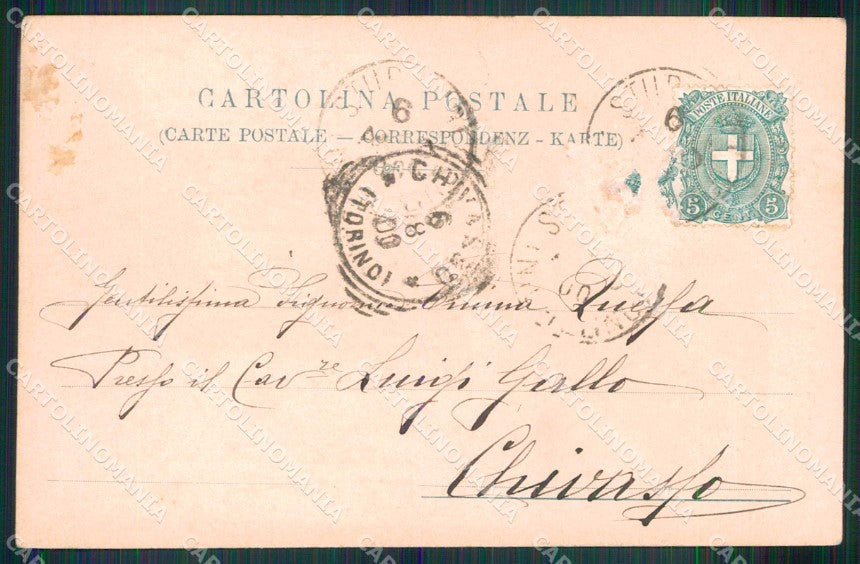 CARTOLINA POSTALE
(CARTE POSTALE — CORRESPONDENZ - KARTE)
POSTE ITALIANE
5 CENT. 5
CHIVASSO
(TORINO)
6
8
00
Gentilissima Signorina Emma
Presso il Cav.re Luigi Gallo
Chivasso
CARTOLINOMANIA